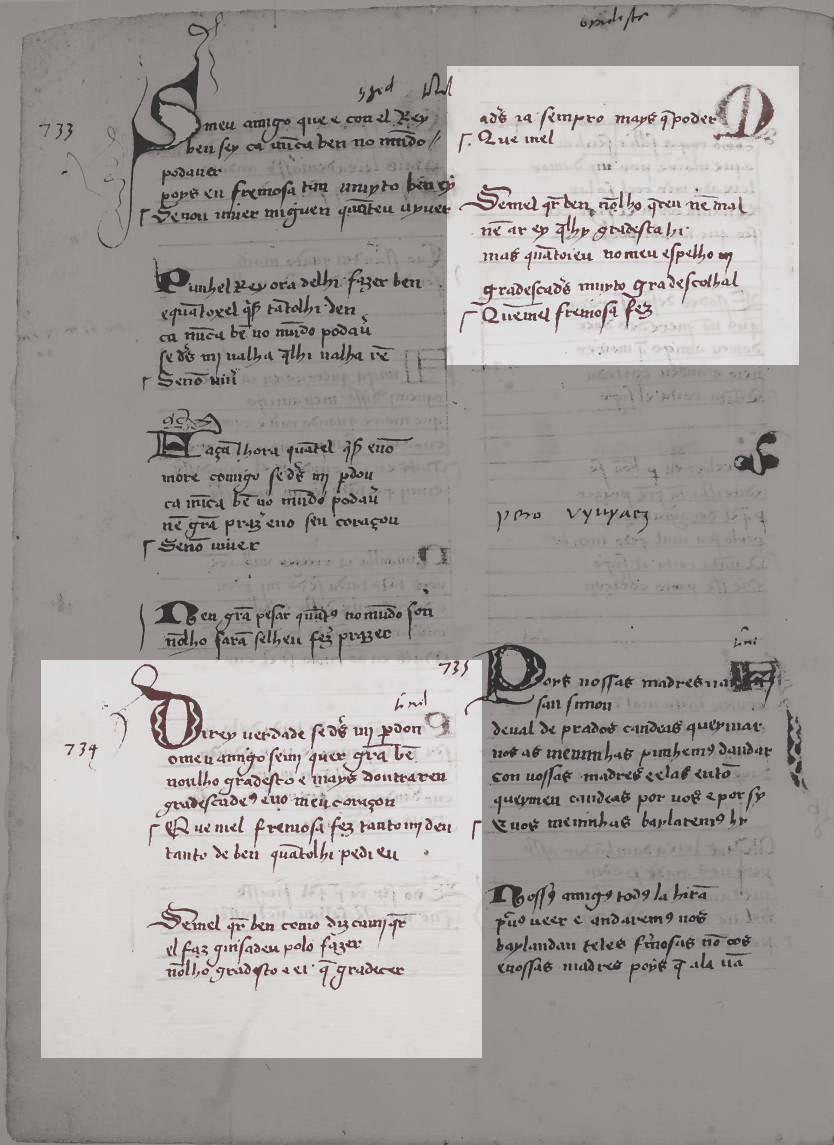 733
Smeu amigo que e con el Rey
ben sey ca nũca ben no mũdo
podauer
poys eu fremosa tan muyto bẽ ey
Senon uiuer migueu quãteu uyuer
Punhel Rey ora delhi fazer ben
equãtoxel q̄r tãtolhi den
ca nũca bẽ no mũdo podau̾
se ds̄ mi ualha q̄lhi ualha rē
Senō uiu̾
Faça lhora quãtel q̄r enō
more comigo se ds̄ mi ꝑdon
ca nũca bẽ no mũdo podau̾
nē grã praz̾ eno seu coraçon
Senō uiuer
Nen grã pesar quãtꝯ no mũdo son
nōlho farã selheu fez̾ prazer
734
Direy uerdade se ds̄ mi ꝑdon
o meu amigo semi quer grã bē
nonlho gradesco e mays doutra ren
gradescadeꝯ eno meu coraçon
Que mel fremosa fez tanto mi deu
tanto de ben quãtolhi pedi eu
Semel qr̄ ben como diz ca mi qr̄
el faz guisadeu polo fazer
nōlho gradesco e ei q̄ gradecer
ads̄ ia sempro mays q̄ poder
Que mel
Semel qr̄ ben nōlho q̄reu nē mal
nē ar ey q̄lhy gradesca hi
mas quãtoieu no meu espelho ui
gradescads̄ muyto gradescolhal
Quemel fremosa fez
pero vyuyaez
735
Poys nossas madres uan
san simon
deual de prados candeas queymar
nos as meninhas punhemꝯ dandar
con nossas madres e elas entō
queymen candeas por nos e por sy
E nos meninhas baylaremꝯ hy
Nossꝯ amigꝯ todꝯ la hirã
pꝛ̄ uꝯ ueer e andaremꝯ nos
baylandan teles fremosas nō cos
e nossas madres poys q̄ ala uã